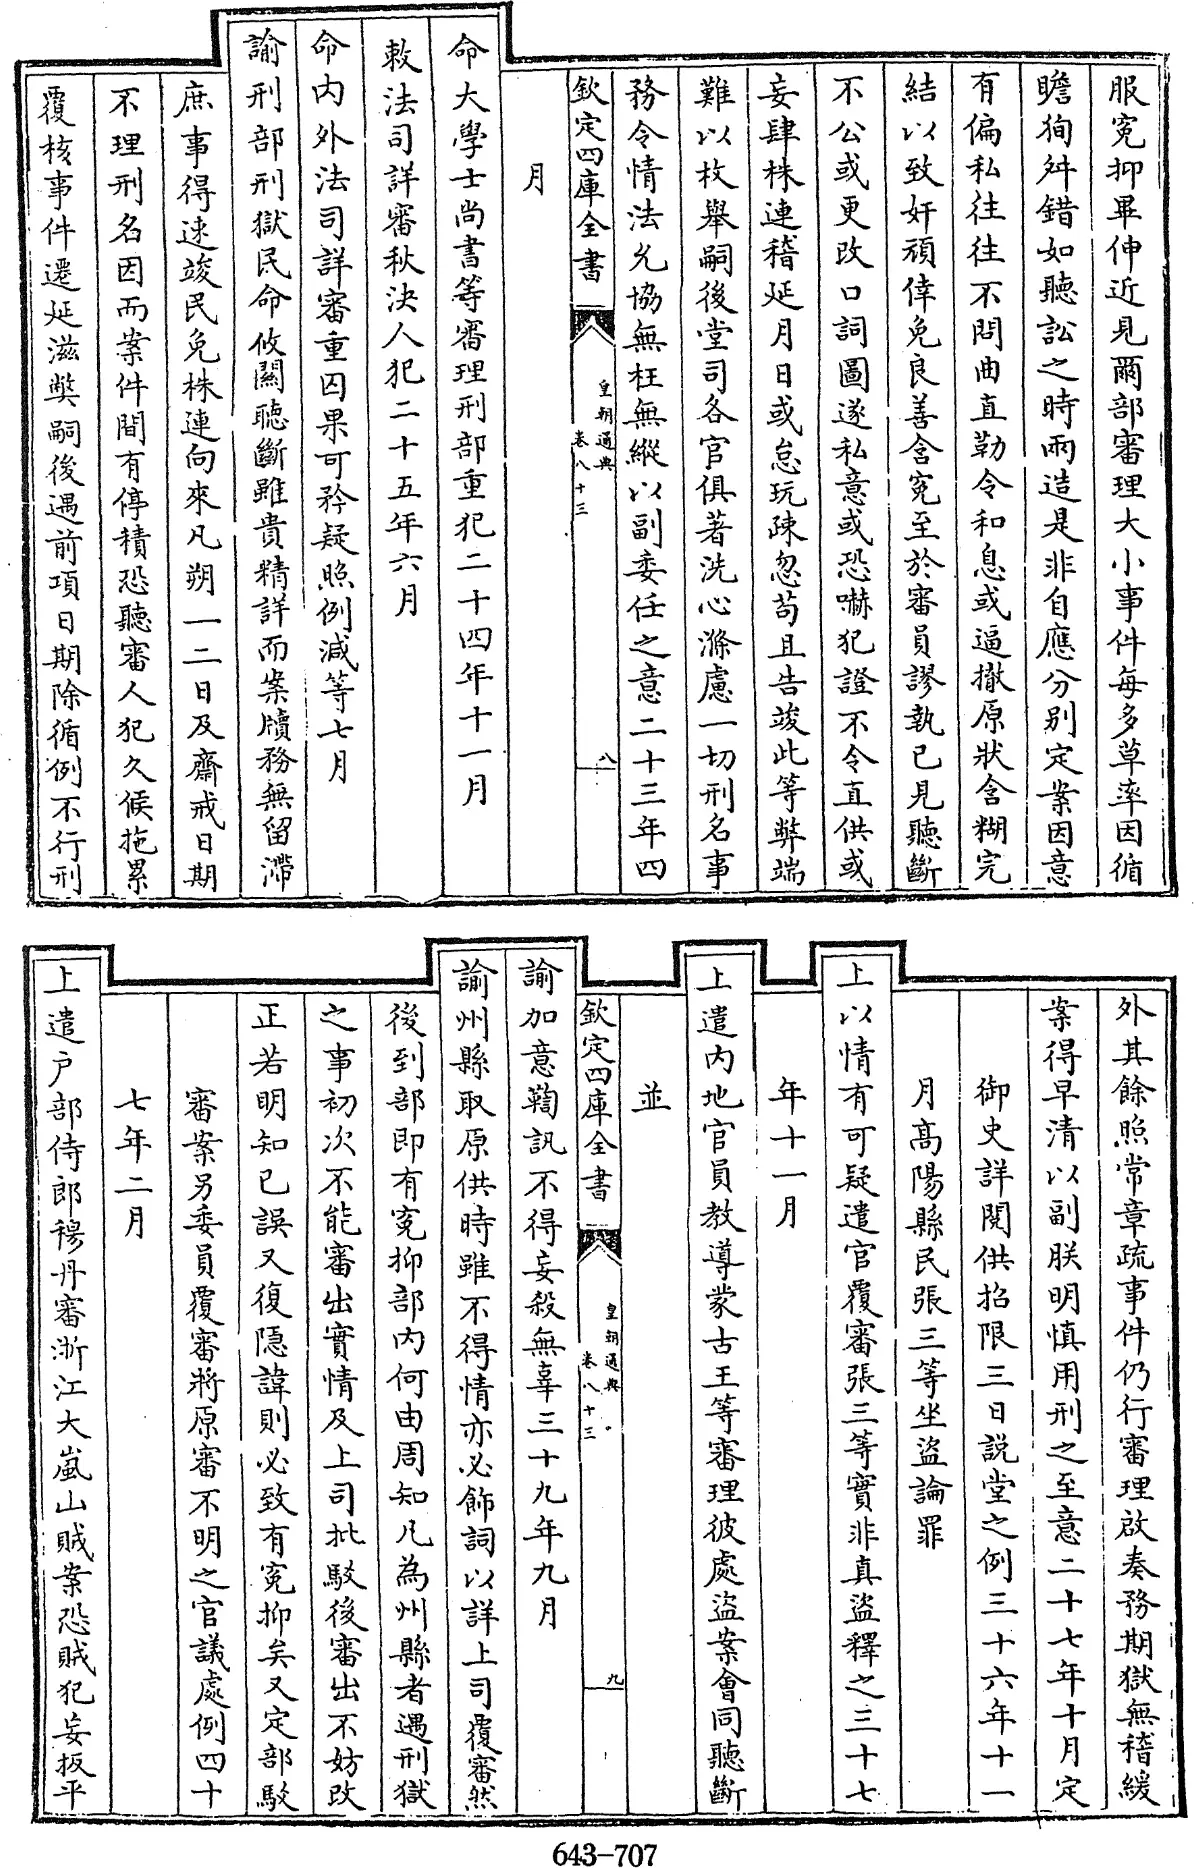 服寃抑畢伸近見爾部審理大小事件每多草率因循
瞻狥舛錯如聽訟之時兩造是非自應分別定案因意
有偏私往往不問曲直勒令和息或逼撤原狀含糊完
結以致奸頑倖免良善含寃至於審員謬執已見聽斷
不公或更改口詞圖遂私意或恐嚇犯證不令直供或
妄肆株連稽延月日或怠玩疎忽苟且告竣此等弊端
難以枚舉嗣後堂司各官俱著洗心滌慮一切刑名事
務令情法允協無枉無縱以副委任之意二十三年四
欽定四庫全書
皇朝通典
卷八十三
八
月
命大學士尚書等審理刑部重犯二十四年十一月
敕法司詳審秋決人犯二十五年六月
命內外法司詳審重囚果可矜疑照例減等七月
諭刑部刑獄民命攸關聽斷雖貴精詳而案牘務無留滯
庶事得速竣民免株連向來凡朔一二日及齋戒日期
不理刑名因而案件間有停積恐聽審人犯久候拖累
覆核事件遷延滋獘嗣後遇前項日期除循例不行刑
外其餘照常章疏事件仍行審理啟奏務期獄無稽緩
案得早清以副朕明慎用刑之至意二十七年十月定
御史詳閱供招限三日說堂之例三十六年十一
月高陽縣民張三等坐盜論罪
上以情有可疑遣官覆審張三等實非真盜釋之三十七
年十一月
上遣內地官員教導蒙古王等審理彼處盜案會同聽斷
並
欽定四庫全書
皇朝通典
卷八十三
九
諭加意鞫訊不得妄殺無辜三十九年九月
諭州縣取原供時雖不得情亦必飾詞以詳上司覆審然
後到部即有寃抑部內何由周知凡為州縣者遇刑獄
之事初次不能審出實情及上司批駁後審出不妨改
正若明知已誤又復隱諱則必致有寃抑矣又定部駁
審案另委員覆審將原審不明之官議處例四十
七年二月
上遣户部侍郎穆丹審浙江大嵐山賊案恐賊犯妄扳平
643-707